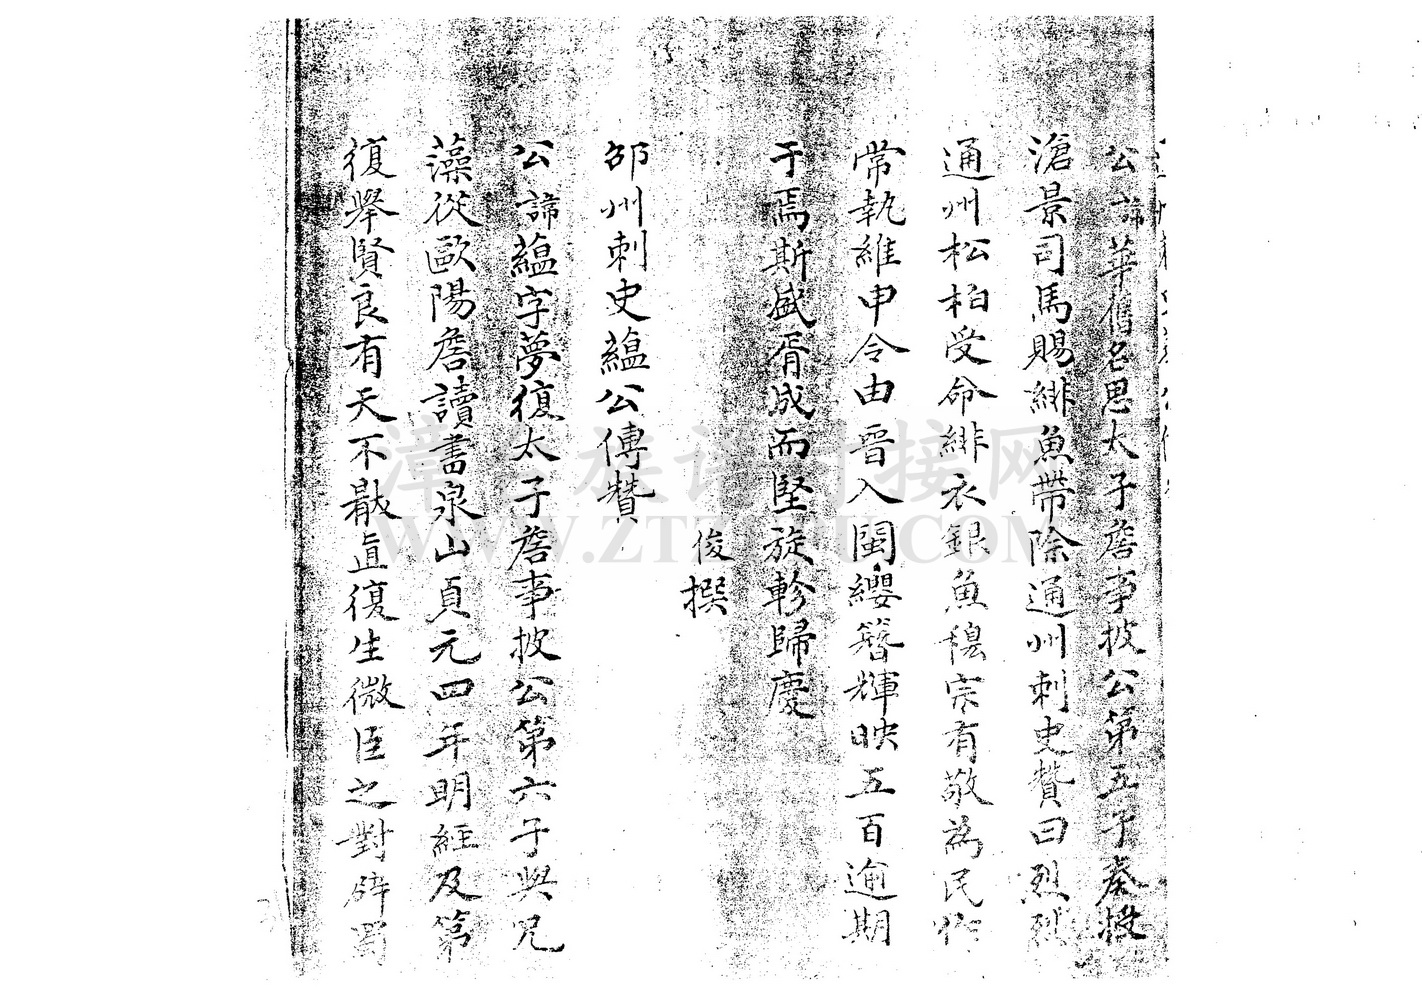 公諱華舊名思太子詹事披公第五子奏授
滄景司馬賜緋魚帶除通州刺史贊曰烈烈
通州松柏受命緋衣銀魚穆宗有敬為民
常執維申令由晉入閩纓簪輝映五百逾期
于焉斯盛胥成而堅旋軫歸慶
俊撰
邵州刺史蘊公傳贊
公諱蘊字夢復太子詹事披公第六子與兄
藻從歐陽詹讀書泉山貞元四年明經及第
復舉賢良有天不敢直復生微臣之對辟蜀
漳台族谱对接网
WWW.ZTZUPU.COM